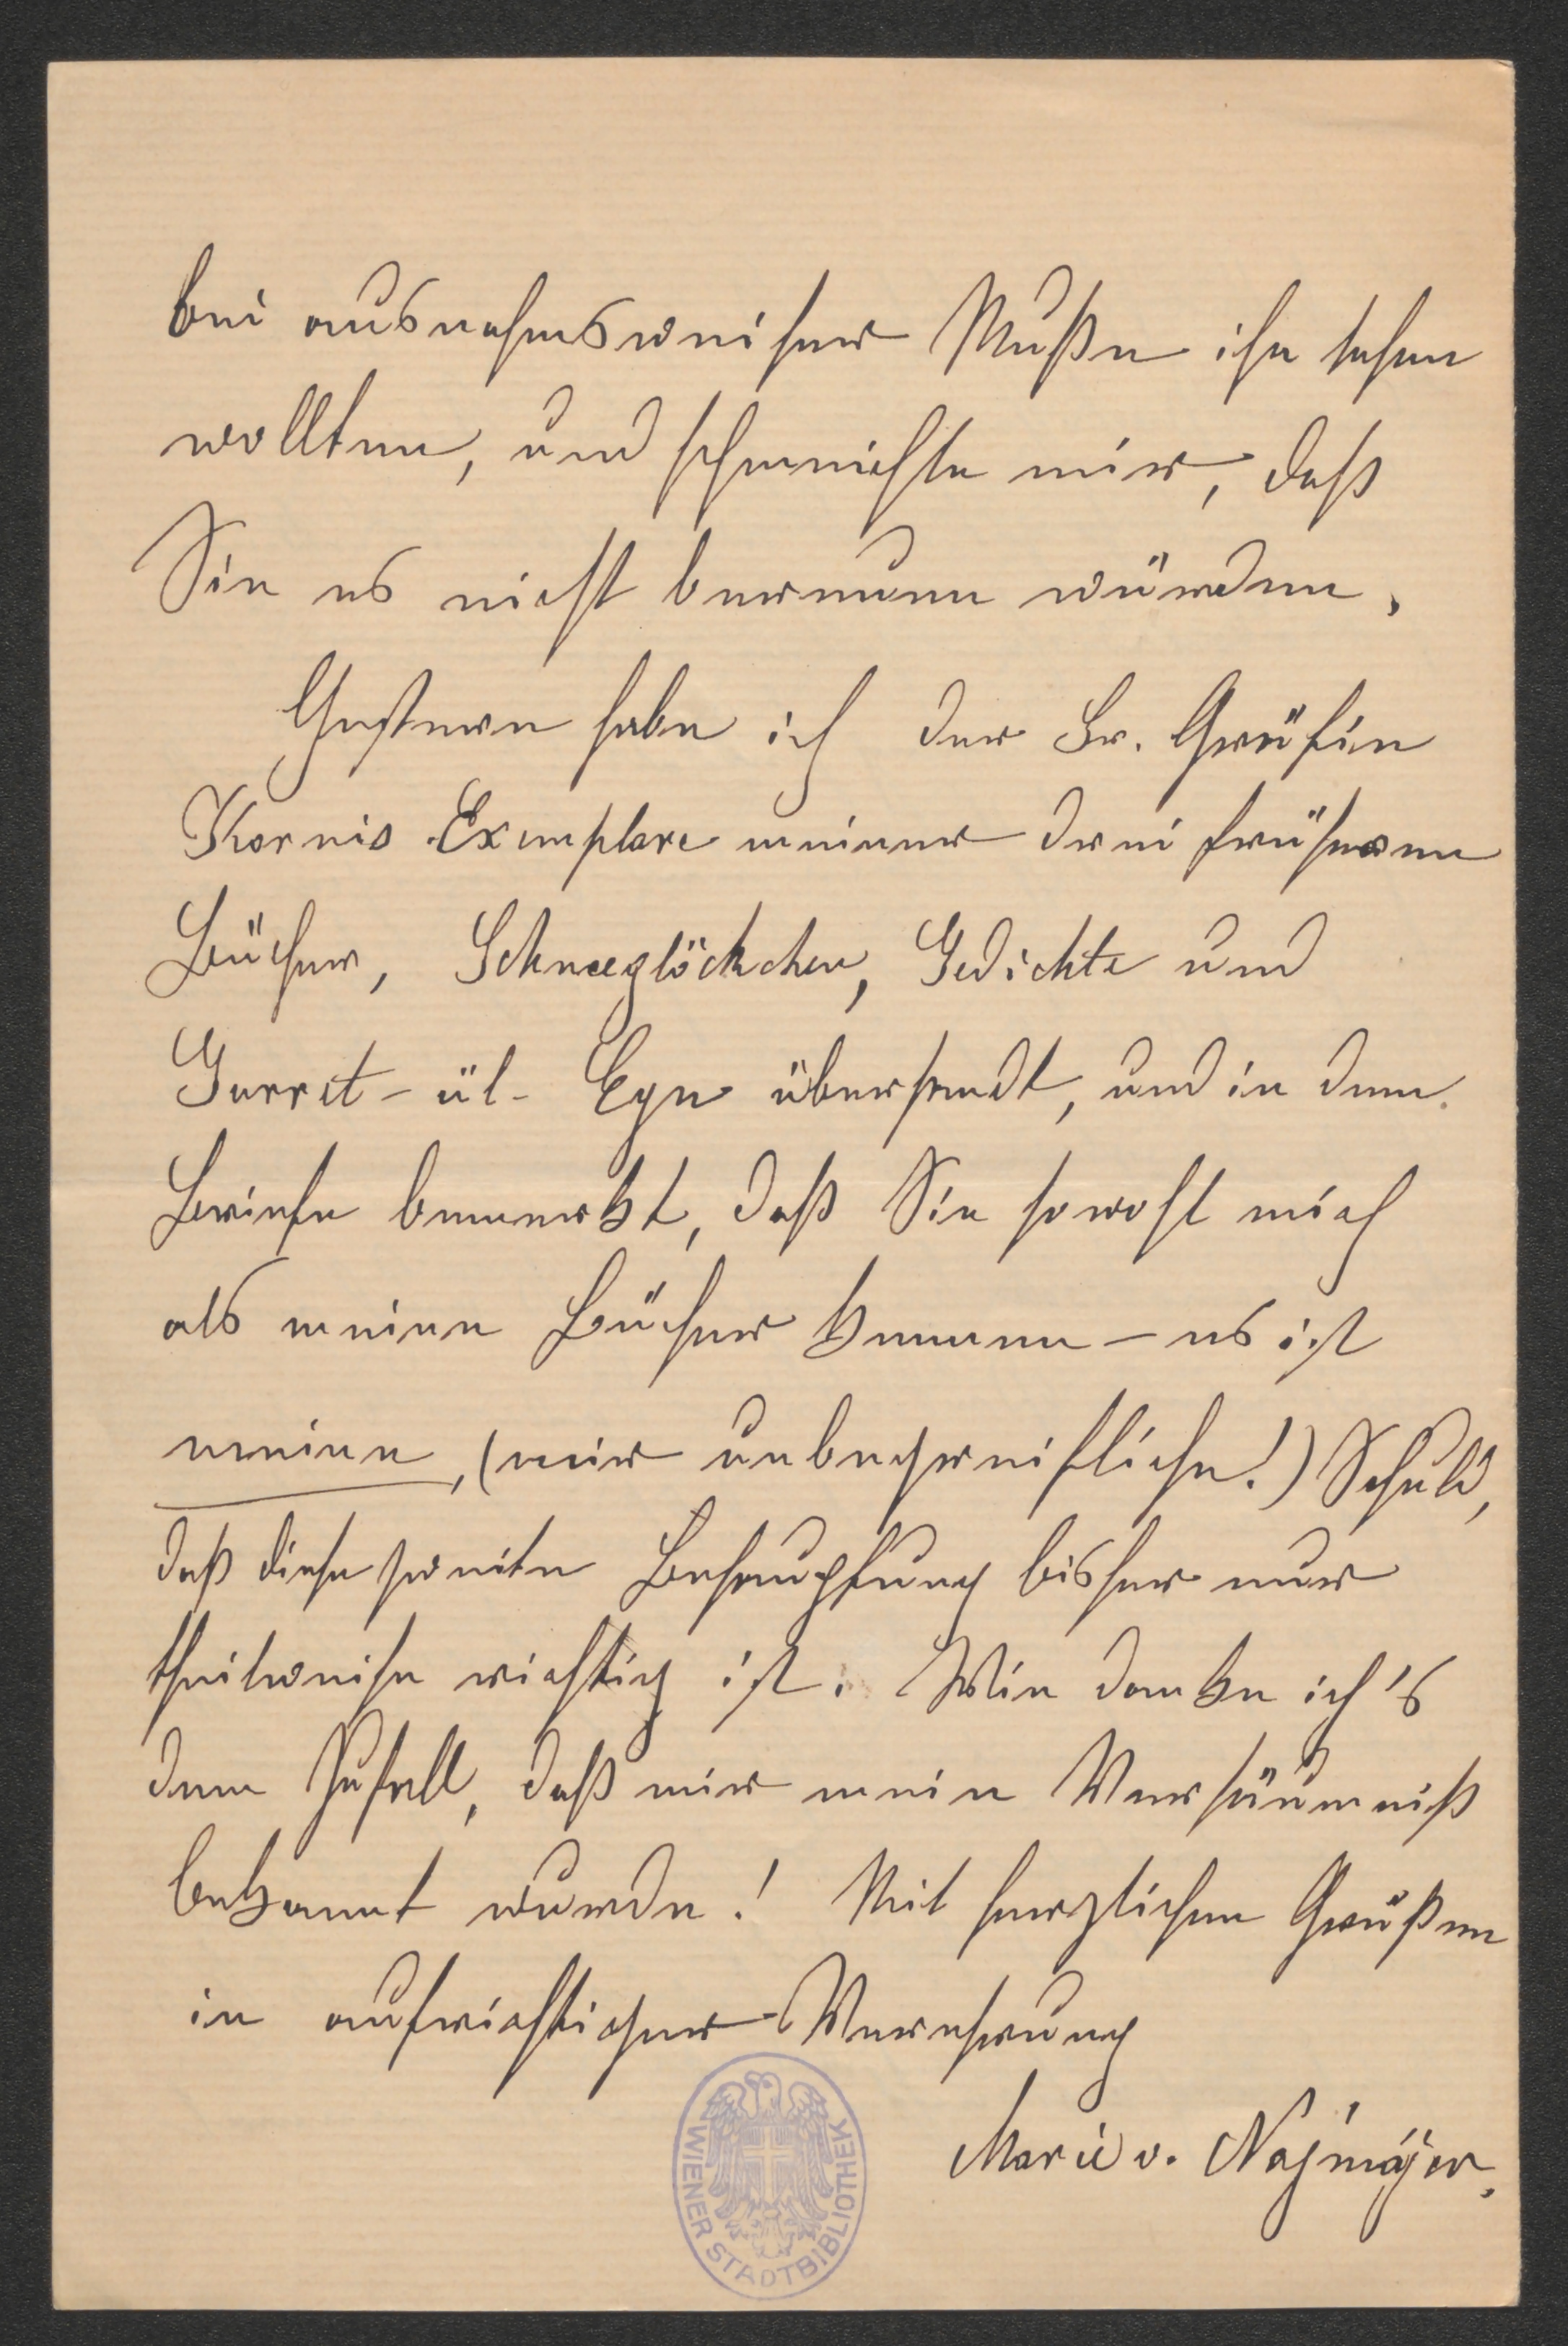 bei ausnahmsweiser Muße ihn sehen
wollten, und schmeichle mir, daß
Sie es nicht bereuen würden.
Gestern habe ich der Gr. Gräfin
Kornis Exemplare meiner drei früheren
Bücher, Schneeglöckchen, Gedichte und
Gurret-ül-Eyn übersandt, und in dem
Briefe bemerkt, daß Sie sowohl mich
als meine Bücher kennen – es ist
meine, (mir unbegreifliche!) Schuld,
daß diese zweite Behauptung bisher nur
theilweise richtig ist. Wie danke ich's
dem Zufall, daß mir mein Versäumniß
bekannt wurde! Mit herzlichen Grüßen
in aufrichtiger Verehrung
Marie v. Najmájer.
WIENER STADTBIBLIOTHEK